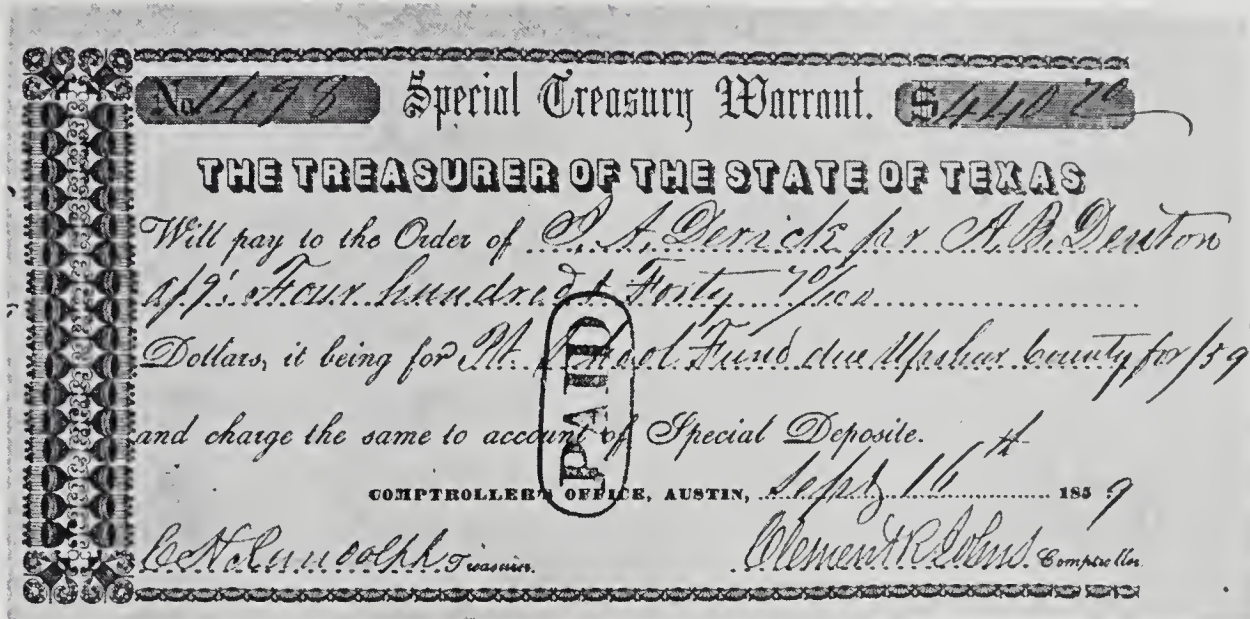 No 1498 Special Treasury Warrant. $440 70
THE TREASURER OF THE STATE OF TEXAS
Will pay to the Order of P. A. Derick pr A. B. Denton
Four hundred & Forty 70/100
Dollars, it being for School Fund due Upshur County for /59
and charge the same to account of Special Deposite.
COMPTROLLER'S OFFICE, AUSTIN, Sept 16th 1859
C H Randolph Treasurer. Clement R Johns Comptroller
PAID